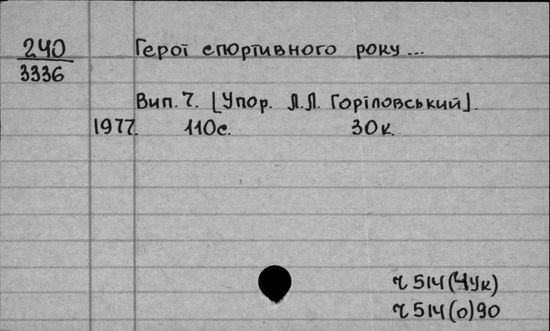 240
3336
Герої спортивного року...
Вип. 7. [Упор. Л.Л. Горіловський].
1977. 110с. 30к.
Ч514(4Ук)
Ч514(о)90